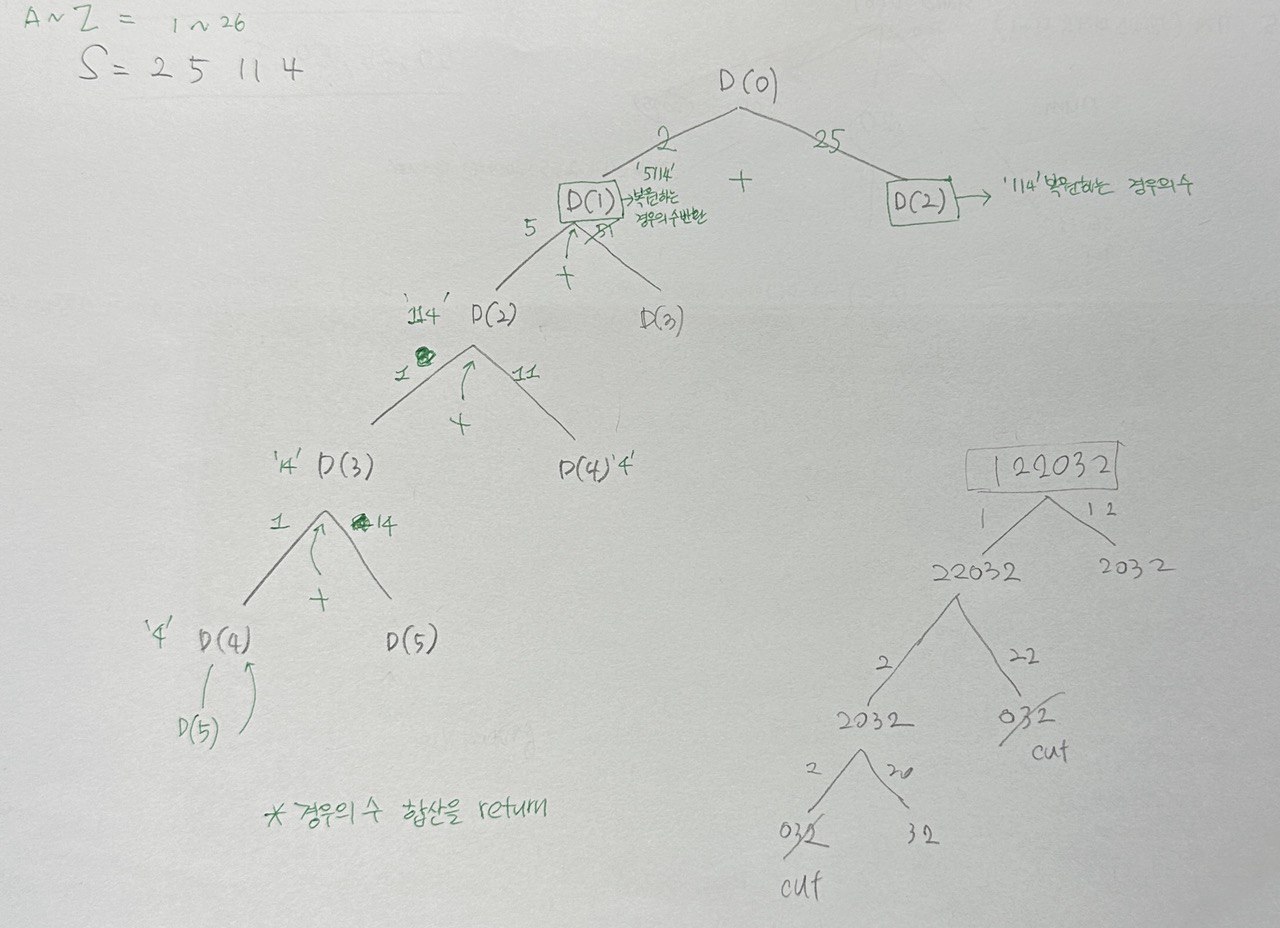 A~Z = 1~26
S = 2 5 11 4
D(0)
2
25
'5114'
+
D(1)
→복원하는
경우의수반환
D(2)
→ '114' 복원하는 경우의수
5
51
+
'114' D(2)
D(3)
1
11
+
'14' D(3)
D(4) '4'
1
14
+
'4' D(4)
D(5)
D(5)
* 경우의 수 합산을 return
122032
1
12
22032
2032
2
22
2032
032
cut
2
20
032
32
cut